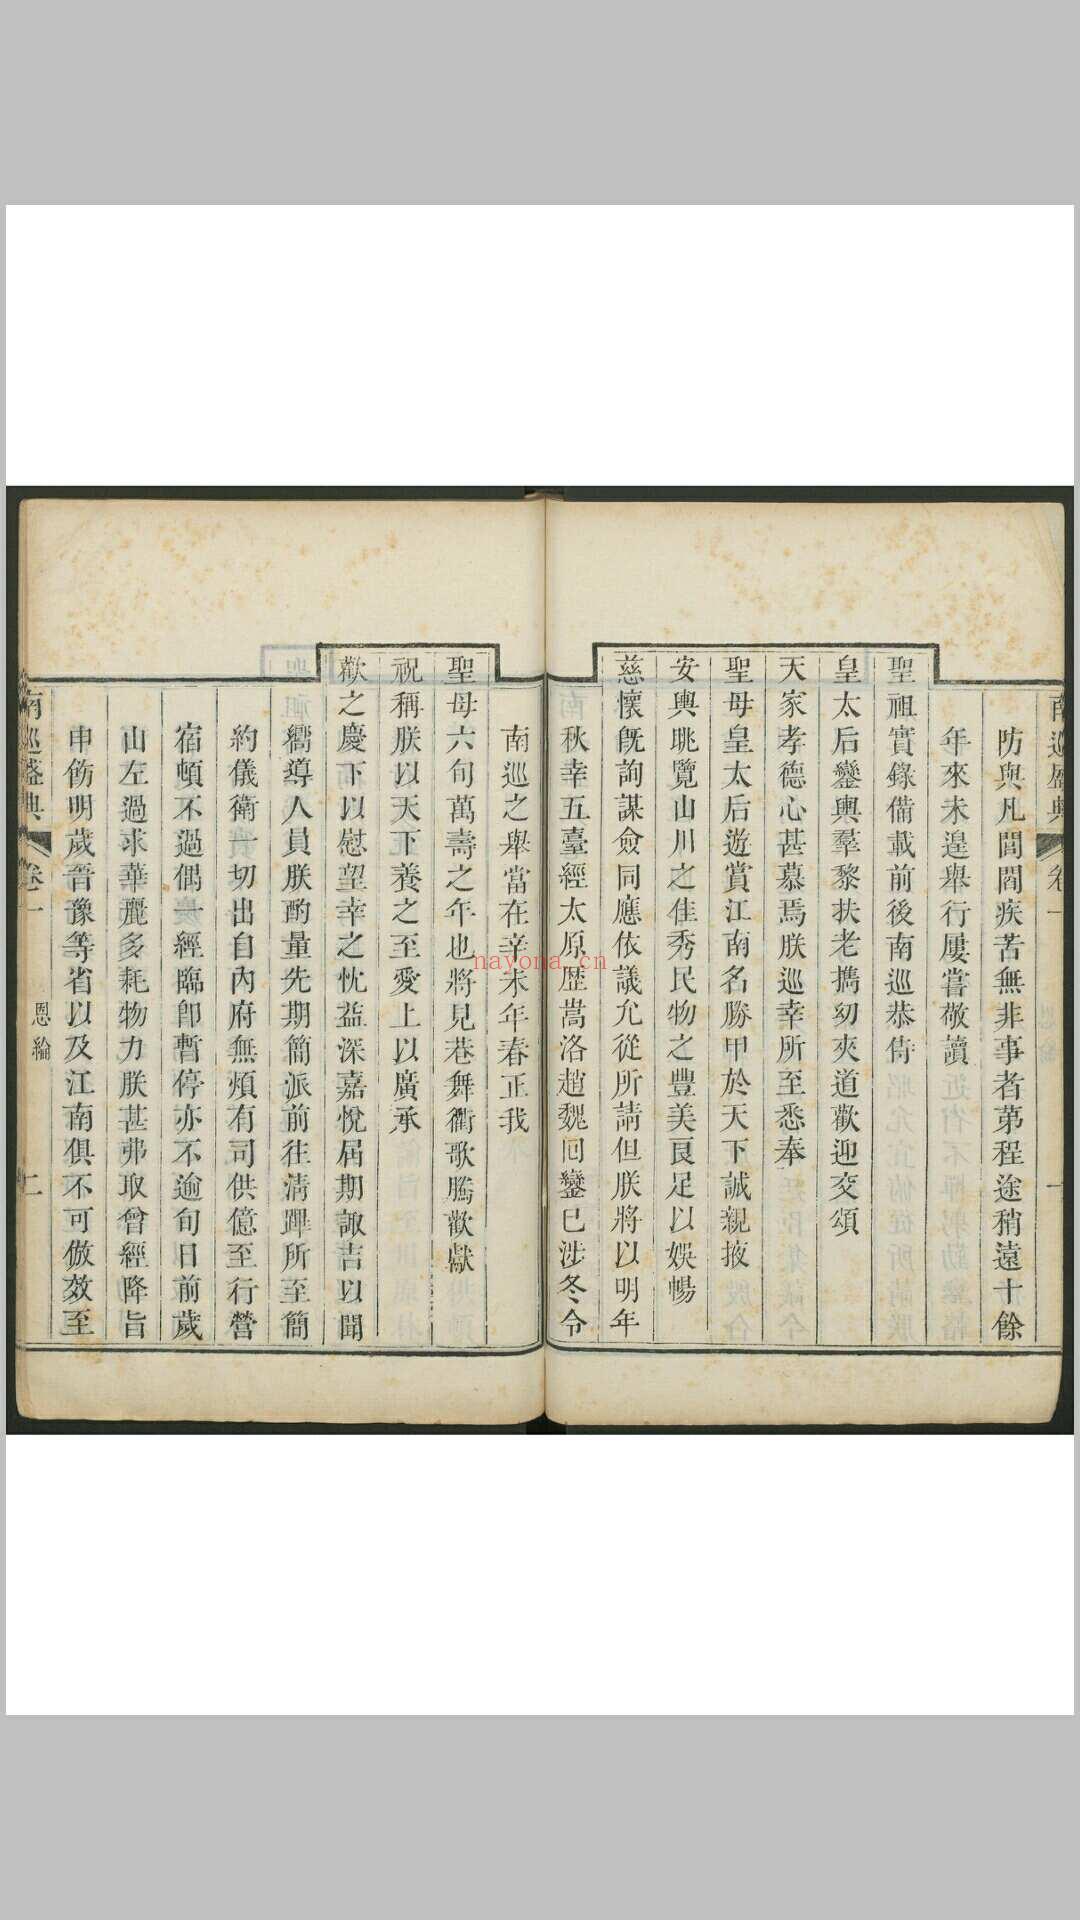 南巡盛典
卷一
一
防與凡閭閻疾苦無非事者第程途稍遠十餘
年來未遑舉行屢嘗敬讀
聖祖實錄備載前後南巡恭侍
皇太后鑾輿羣黎扶老擕幼夾道歡迎交頌
天家孝德心甚慕焉朕巡幸所至悉奉
聖母皇太后遊賞江南名勝甲於天下誠親掖
安輿眺覽山川之佳秀民物之豐美良足以娛暢
慈懷旣詢謀僉同應依議允從所請但朕將以明年
秋幸五臺經太原歴嵩洛趙魏回鑾已涉冬令
南巡之舉當在辛未年春正我
聖母六旬萬壽之年也將見巷舞衢歌騰歡獻
祝稱朕以天下養之至愛上以廣承
歡之慶下以慰望幸之忱益深嘉悅屆期諏吉以聞
嚮導人員朕酌量先期簡派前往淸蹕所至簡
約儀衞一切出自內府無煩有司供億至行營
宿頓不過偶一經臨卽暫停亦不逾旬日前歲
山左過求華麗多耗物力朕甚弗取曾經降旨
申飭明歲晉豫等省以及江南俱不可倣效至
南巡盛典
卷一
恩綸
二
nayona.cn